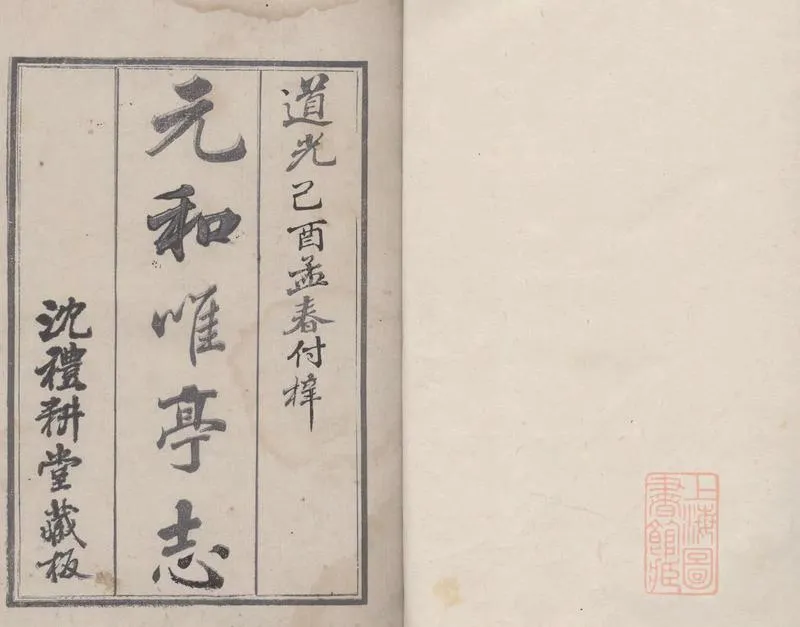 道光己酉孟春付梓
元和唯亭志
沈禮耕堂藏板
上海圖
書館藏